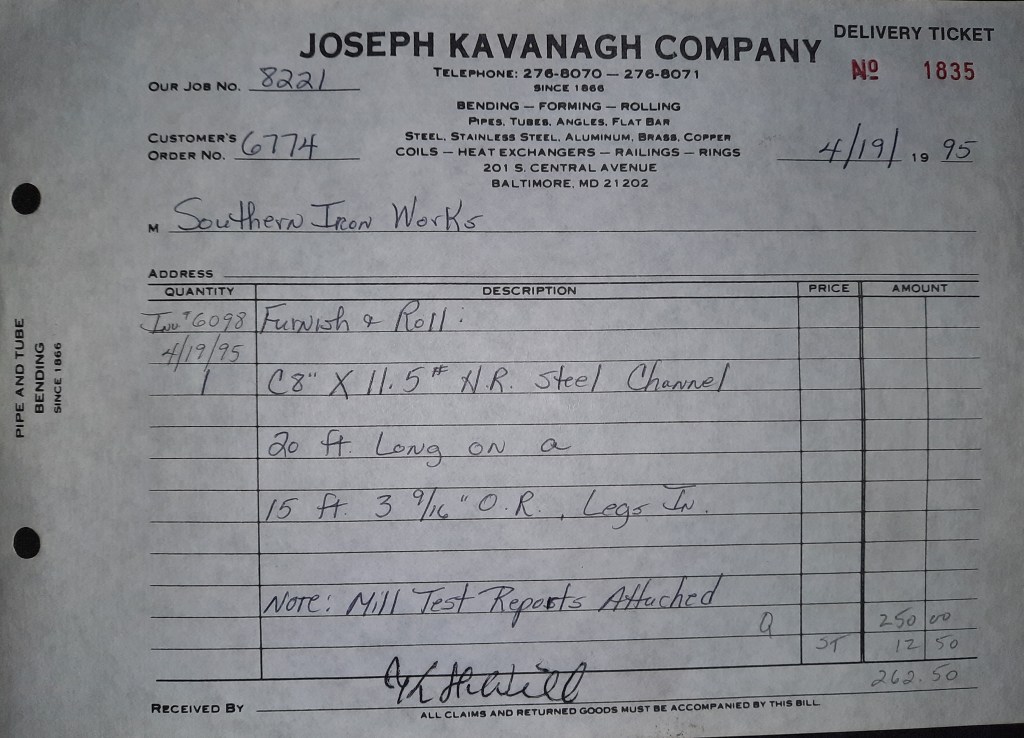 JOSEPH KAVANAGH COMPANY
DELIVERY TICKET
Nº 1835
TELEPHONE: 276-8070 — 276-8071
SINCE 1866
OUR JOB NO. 8221
BENDING — FORMING — ROLLING
PIPES, TUBES, ANGLES, FLAT BAR
STEEL, STAINLESS STEEL, ALUMINUM, BRASS, COPPER
CUSTOMER'S ORDER NO. 6774
COILS — HEAT EXCHANGERS — RAILINGS — RINGS
4/19/ 19 95
201 S. CENTRAL AVENUE
BALTIMORE, MD 21202
M Southern Iron Works
ADDRESS
QUANTITY DESCRIPTION PRICE AMOUNT
Inv # 6098 Furnish & Roll:
4/19/95
1 C8" X 11.5# H.R. Steel Channel
20 ft. Long on a
15 ft. 3 9/16" O.R., Legs In.
Note: Mill Test Reports Attached
Q 250 00
ST 12 50
262.50
RECEIVED BY
ALL CLAIMS AND RETURNED GOODS MUST BE ACCOMPANIED BY THIS BILL
PIPE AND TUBE
BENDING
SINCE 1866